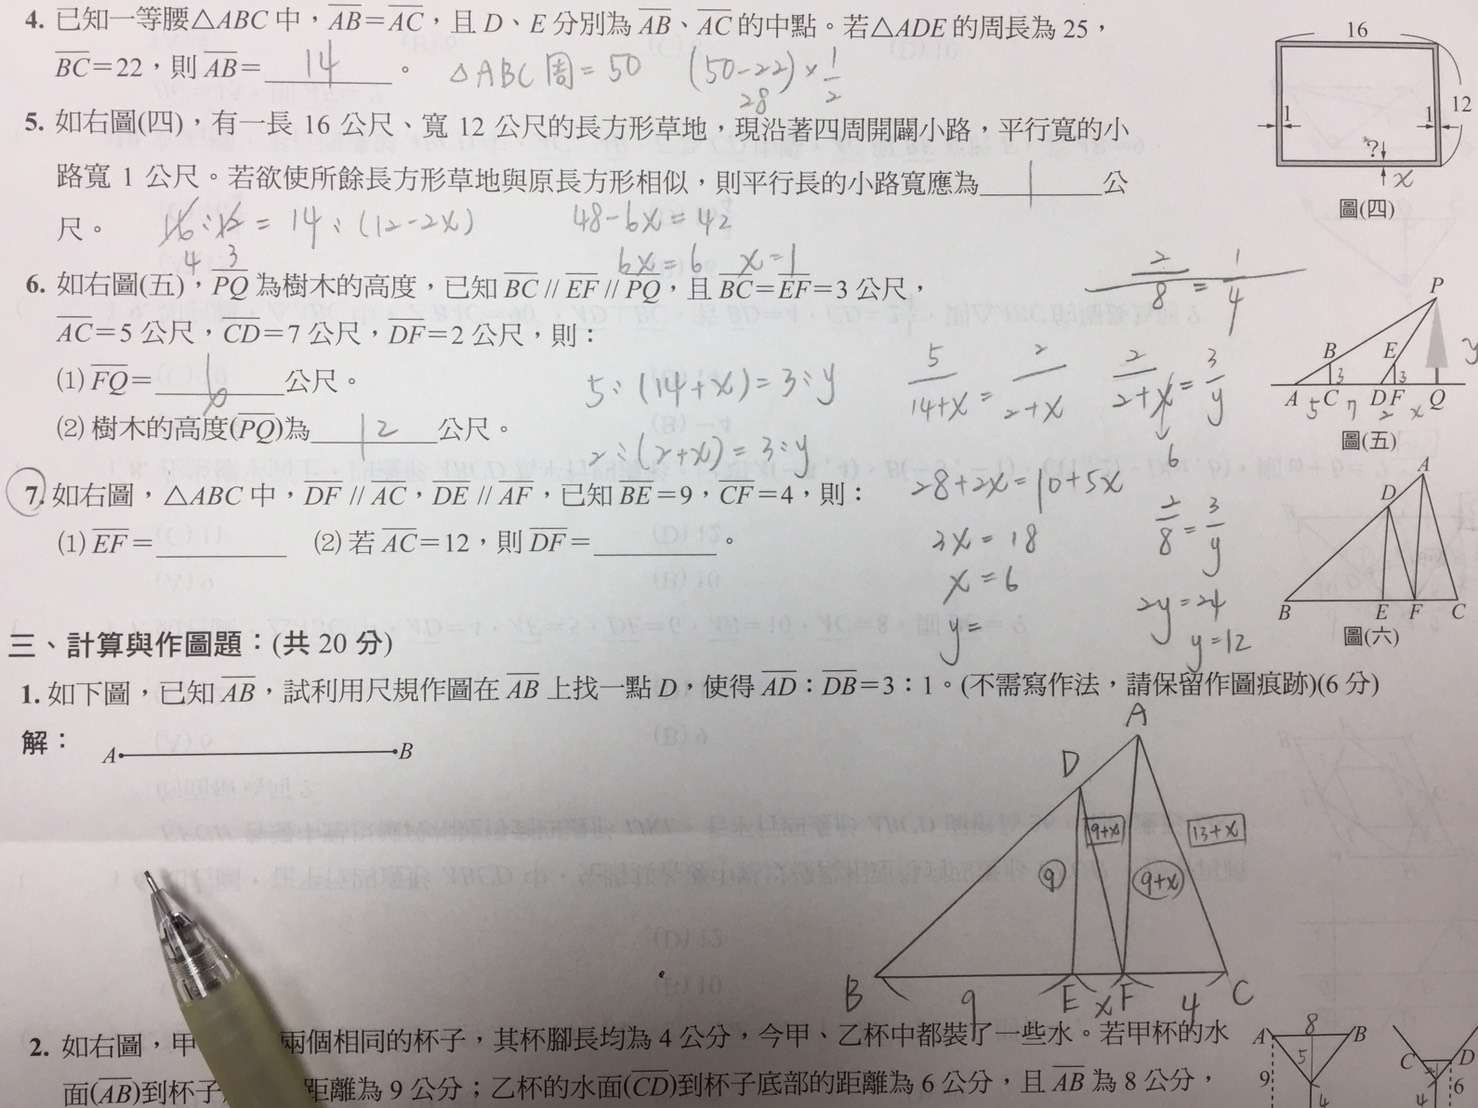 4. 已知一等腰△ABC中，AB=AC，且D、E分別為AB、AC的中點。若△ADE的周長為25，
BC=22，則AB= 14 。 △ABC周=50 (50-22)×1/2
28
5. 如右圖(四)，有一長 16 公尺、寬 12 公尺的長方形草地，現沿著四周開闢小路，平行寬的小
路寬 1 公尺。若欲使所餘長方形草地與原長方形相似，則平行長的小路寬應為 1 公
尺。 16:12=14:(12-2x) 48-6x=42
4 3 6x=6 x=1
16
12
1 1
?
x
圖(四)
6. 如右圖(五)，PQ為樹木的高度，已知BC // EF // PQ，且BC=EF=3公尺，
AC=5公尺，CD=7公尺，DF=2公尺，則：
(1) FQ= 6 公尺。
(2) 樹木的高度(PQ)為 12 公尺。
2/8=1/4
5:(14+x)=3:y
2:(2+x)=3:y
5/14+x=2/2+x
28+2x=10+5x
3x=18
x=6
y=
2/2+x=3/y
6
2/8=3/y
2y=24
y=12
P
B E y
3 3
A 5 C 7 D 2 F x Q
圖(五)
7. 如右圖，△ABC中，DF // AC，DE // AF，已知BE=9，CF=4，則：
(1) EF=　　　(2) 若AC=12，則DF=　　　。
A
D
B E F C
圖(六)
三、計算與作圖題：(共 20 分)
1. 如下圖，已知AB，試利用尺規作圖在AB上找一點D，使得AD：DB=3：1。(不需寫作法，請保留作圖痕跡)(6 分)
解：
A B
A
D
9+x 13+x
9 9+x
B E F C
9 x 4
2. 如右圖，甲
兩個相同的杯子，其杯腳長均為 4 公分，今甲、乙杯中都裝了一些水。若甲杯的水
面(AB)到杯子
距離為 9 公分；乙杯的水面(CD)到杯子底部的距離為 6 公分，且AB為 8 公分，
A 8 B
5
9
4
C D
6
4